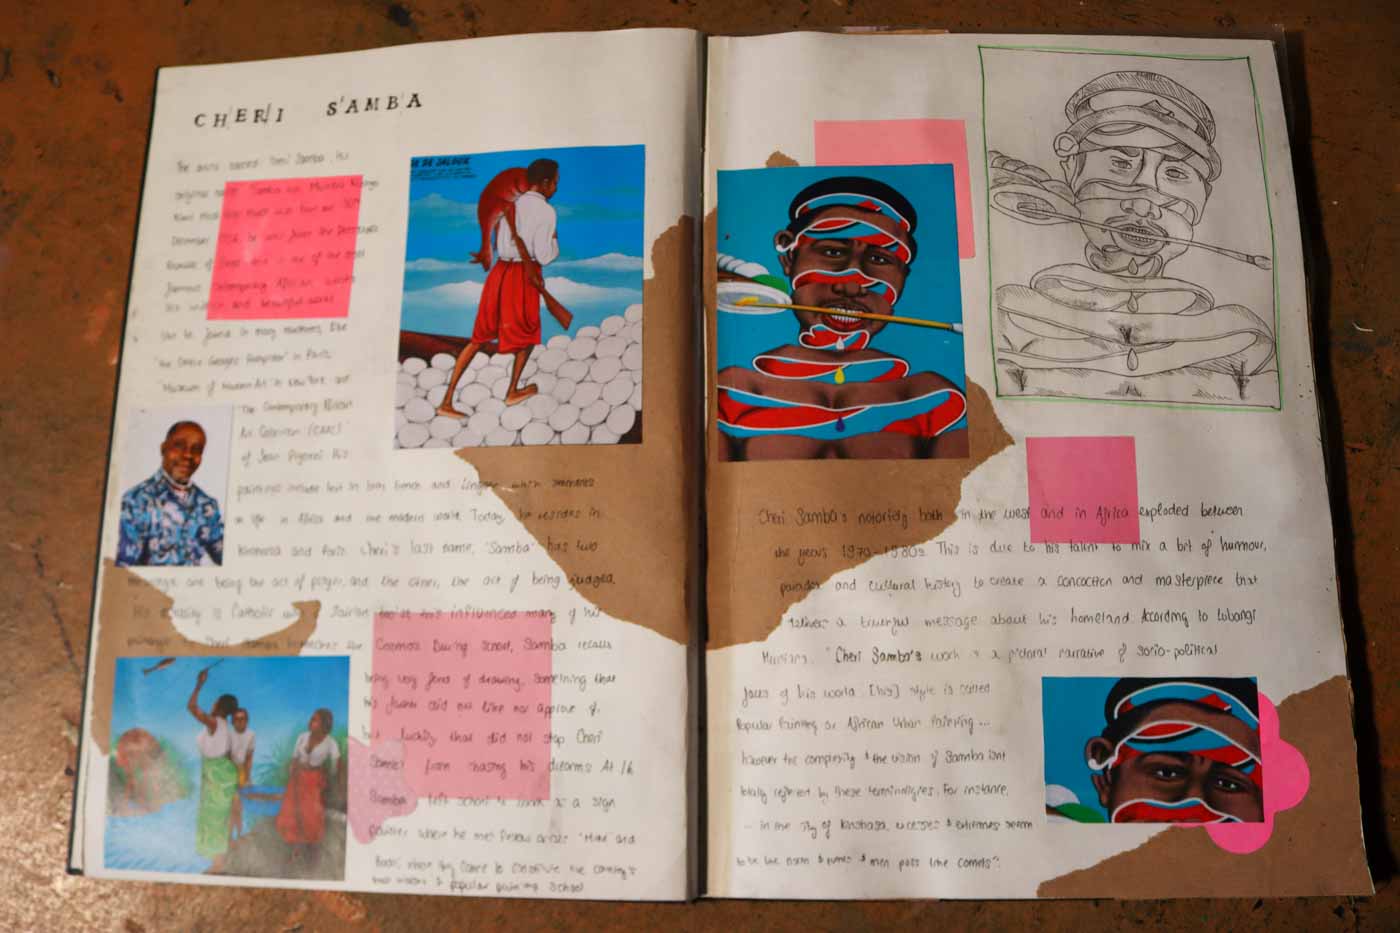 CHERI SAMBA
The artist named Cheri Samba, his
original name Samba wa Mbimba N'zinga
was born on 30th
December he was from the Democratic
Republic of and is one of the most
famous contemporary African artists
his and beautiful works
can be found in many museums, like
"the Centre Georges Pompidou" in Paris,
"Museum of Modern Art" in New York and
"The Contemporary African
Art Collection (CAAC)"
of Jean Pigozzi. His
paintings include text in both French and Lingala which
on life in Africa and the modern world. Today, he resides in
Kinshasa and Paris. Cheri's last name, "Samba" has two
meanings one being the act of prayer, and the other, the act of being judged.
His is Catholic with a this influenced many of his
paintings the Cosmos. During school, Samba recalls
being very fond of drawing, something that
his did not like nor approve of,
but luckily that did not stop Cheri
Samba from chasing his dreams. At 16
Samba left school to work as a sign
painter where he met fellow artist "Moke and
Bodo", where they came to constitute the country's
& popular painting school
Cheri Samba's notoriety both in the west and in Africa exploded between
the years 1970-1980s. This is due to his talent to mix a bit of humour,
paradox and cultural history to create a concoction and masterpiece that
a message about his homeland. According to Lubangi
Muniania, "Cheri Samba's work is a pictorial narrative of socio-political
of his world. [his] style is called
Popular Painting or African Urban Painting...
however the complexity & the vision of Samba isnt
totally reflected by these terminologies. For instance,
... in the city of Kinshasa, excesses & extremes seem
to be the norm & & men pass like comets".